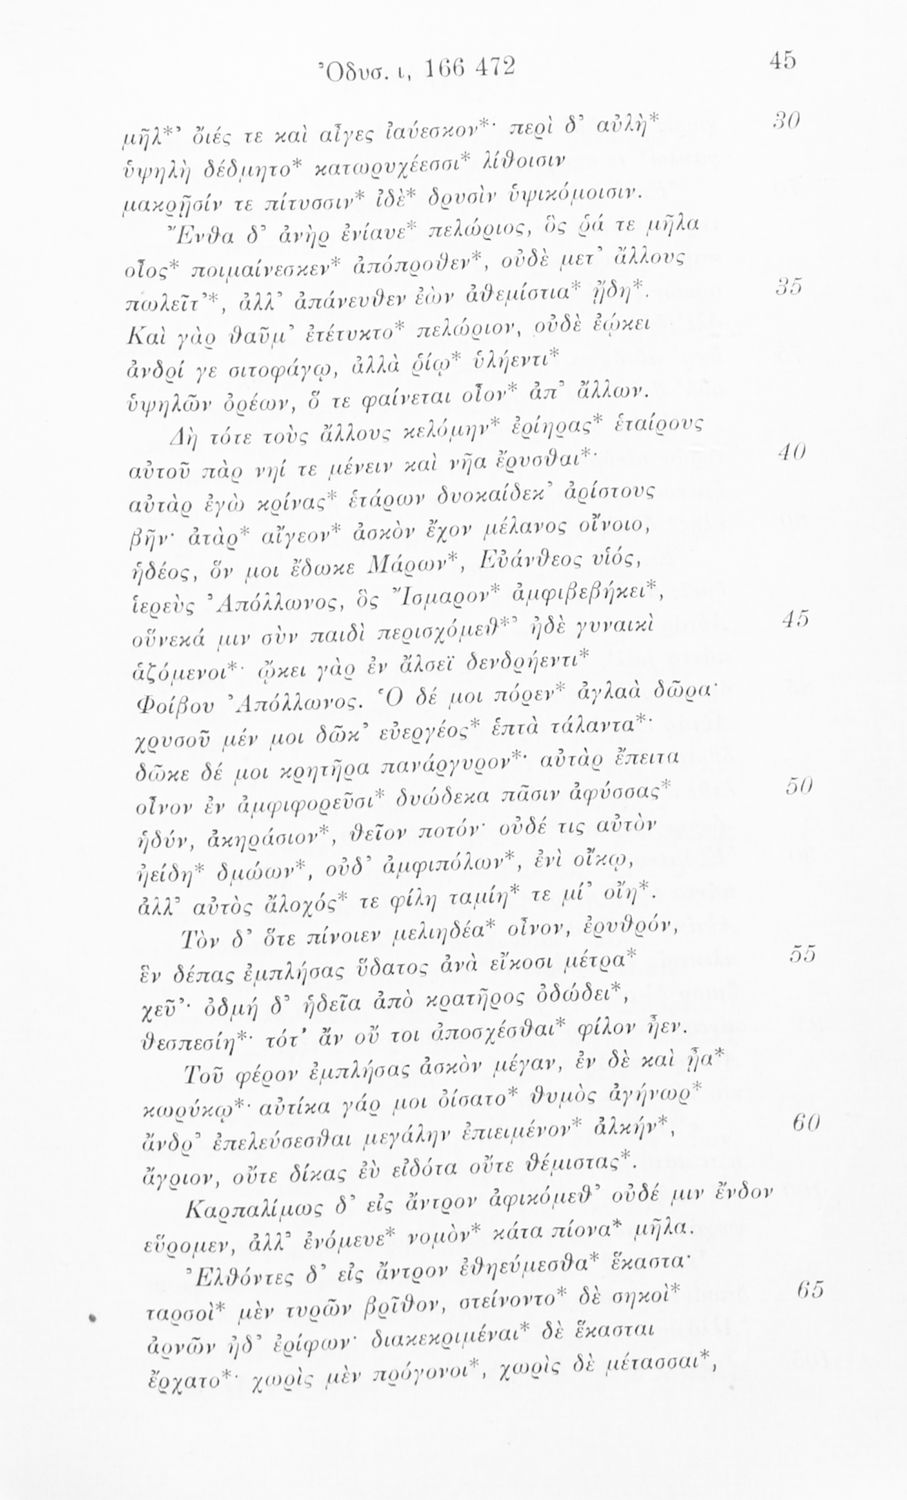 Ὀδυσ. ι, 166 472 45
μῆλ*’ ὄιές τε καὶ αἶγες ἰαύεσκον*· περὶ δ’ αὐλὴ* 30
ὑψηλὴ δέδμητο* κατωρυχέεσσι* λίθοισιν
μακρῇσίν τε πίτυσσιν* ἰδὲ* δρυσὶν ὑψικόμοισιν.
Ἔνθα δ’ ἀνὴρ ἐνίαυε* πελώριος, ὃς ῥά τε μῆλα
οἶος* ποιμαίνεσκεν* ἀπόπροθεν*, οὐδὲ μετ’ ἄλλους
πωλεῖτ’*, ἀλλ’ ἀπάνευθεν ἐὼν ἀθεμίστια* ᾔδη*. 35
Καὶ γὰρ θαῦμ’ ἐτέτυκτο* πελώριον, οὐδὲ ἐῴκει
ἀνδρί γε σιτοφάγῳ, ἀλλὰ ῥίῳ* ὑλήεντι*
ὑψηλῶν ὀρέων, ὅ τε φαίνεται οἶον* ἀπ’ ἄλλων.
Δὴ τότε τοὺς ἄλλους κελόμην* ἐρίηρας* ἑταίρους
αὐτοῦ πὰρ νηί τε μένειν καὶ νῆα ἔρυσθαι*· 40
αὐτὰρ ἐγὼ κρίνας* ἑτάρων δυοκαίδεκ’ ἀρίστους
βῆν· ἀτὰρ* αἴγεον* ἀσκὸν ἔχον μέλανος οἴνοιο,
ἡδέος, ὅν μοι ἔδωκε Μάρων*, Εὐάνθεος υἱός,
ἱερεὺς Ἀπόλλωνος, ὃς Ἴσμαρον* ἀμφιβεβήκει*,
οὕνεκά μιν σὺν παιδὶ περισχόμεθ*’ ἠδὲ γυναικὶ 45
ἁζόμενοι*· ᾤκει γὰρ ἐν ἄλσεϊ δενδρήεντι*
Φοίβου Ἀπόλλωνος. Ὁ δέ μοι πόρεν* ἀγλαὰ δῶρα·
χρυσοῦ μέν μοι δῶκ’ εὐεργέος* ἑπτὰ τάλαντα*·
δῶκε δέ μοι κρητῆρα πανάργυρον*· αὐτὰρ ἔπειτα
οἶνον ἐν ἀμφιφορεῦσι* δυώδεκα πᾶσιν ἀφύσσας* 50
ἡδύν, ἀκηράσιον*, θεῖον ποτόν· οὐδέ τις αὐτὸν
ἠείδη* δμώων*, οὐδ’ ἀμφιπόλων*, ἐνὶ οἴκῳ,
ἀλλ’ αὐτὸς ἄλοχός* τε φίλη ταμίη* τε μί’ οἴη*.
Τὸν δ’ ὅτε πίνοιεν μελιηδέα* οἶνον, ἐρυθρόν,
ἓν δέπας ἐμπλήσας ὕδατος ἀνὰ εἴκοσι μέτρα* 55
χεῦ’· ὀδμή δ’ ἡδεῖα ἀπὸ κρατῆρος ὀδώδει*,
θεσπεσίη*· τότ’ ἂν οὔ τοι ἀποσχέσθαι* φίλον ἦεν.
Τοῦ φέρον ἐμπλήσας ἀσκὸν μέγαν, ἐν δὲ καὶ ᾖα*
κωρύκῳ*· αὐτίκα γάρ μοι ὀίσατο* θυμὸς ἀγήνωρ*
ἄνδρ’ ἐπελεύσεσθαι μεγάλην ἐπιειμένον* ἀλκήν*, 60
ἄγριον, οὔτε δίκας ἐὺ εἰδότα οὔτε θέμιστας*.
Καρπαλίμως δ’ εἰς ἄντρον ἀφικόμεθ’ οὐδέ μιν ἔνδον
εὕρομεν, ἀλλ’ ἐνόμευε* νομὸν* κάτα πίονα* μῆλα.
Ἐλθόντες δ’ εἰς ἄντρον ἐθηεύμεσθα* ἕκαστα·
ταρσοὶ* μὲν τυρῶν βρῖθον, στείνοντο* δὲ σηκοὶ* 65
ἀρνῶν ἠδ’ ἐρίφων· διακεκριμέναι* δὲ ἕκασται
ἔρχατο*· χωρὶς μὲν πρόγονοι*, χωρὶς δὲ μέτασσαι*,